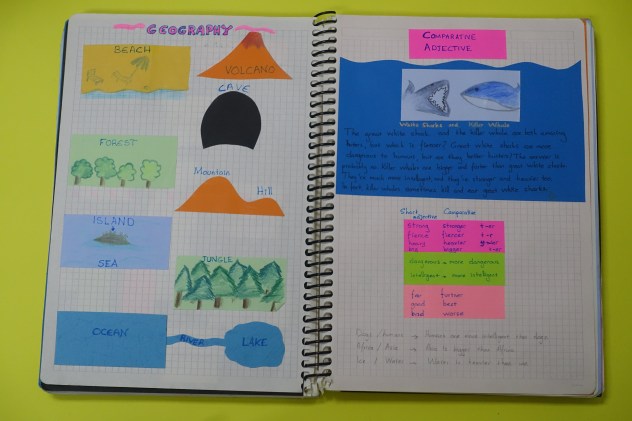 GEOGRAPHY
BEACH
VOLCANO
CAVE
FOREST
Mountain
Hill
ISLAND
SEA
JUNGLE
OCEAN
RIVER
LAKE
COMPARATIVE
ADJECTIVE
White Sharks and Killer Whale
The great white shark and the killer whale are both amazing
hunters, but which is fiercer? Great white sharks are more
dangerous to humans, but are they better hunters? The answer is
probably no. Killer whales are bigger and faster than great white sharks.
They're more intelligent and they're stronger and heavier too.
In fact, killer whales sometimes kill and eat great white sharks.
Short adjective Comparative
Strong stronger +er
fierce fiercer +r
heavy heavier
big bigger +er
dangerous = more dangerous
intelligent = more intelligent
far further
good best
bad worse
Humans are more intelligent than dogs.
Africa / Asia → Asia is bigger than Africa.
Ice / Water → Water is heavier than ice.